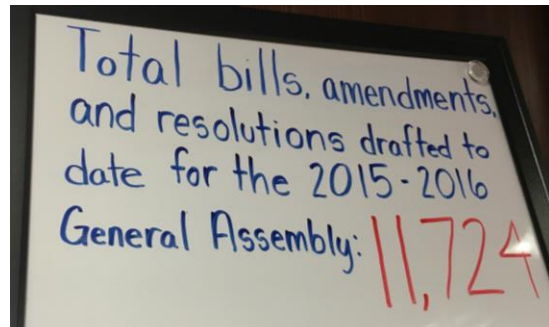 Total bills, amendments,
and resolutions drafted to
date for the 2015-2016
General Assembly: 11,724